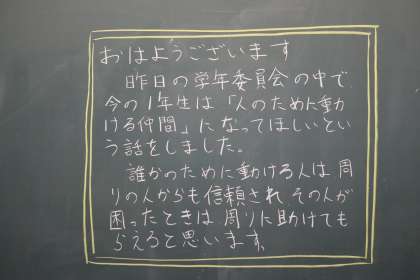 おはようございます
昨日の学年委員会の中で、
今の1年生は「人のために動
ける仲間」になってほしいとい
う話をしました。
誰かのために動ける人は周
りの人からも信頼され、その人が
困ったときは周りに助けても
らえると思います。